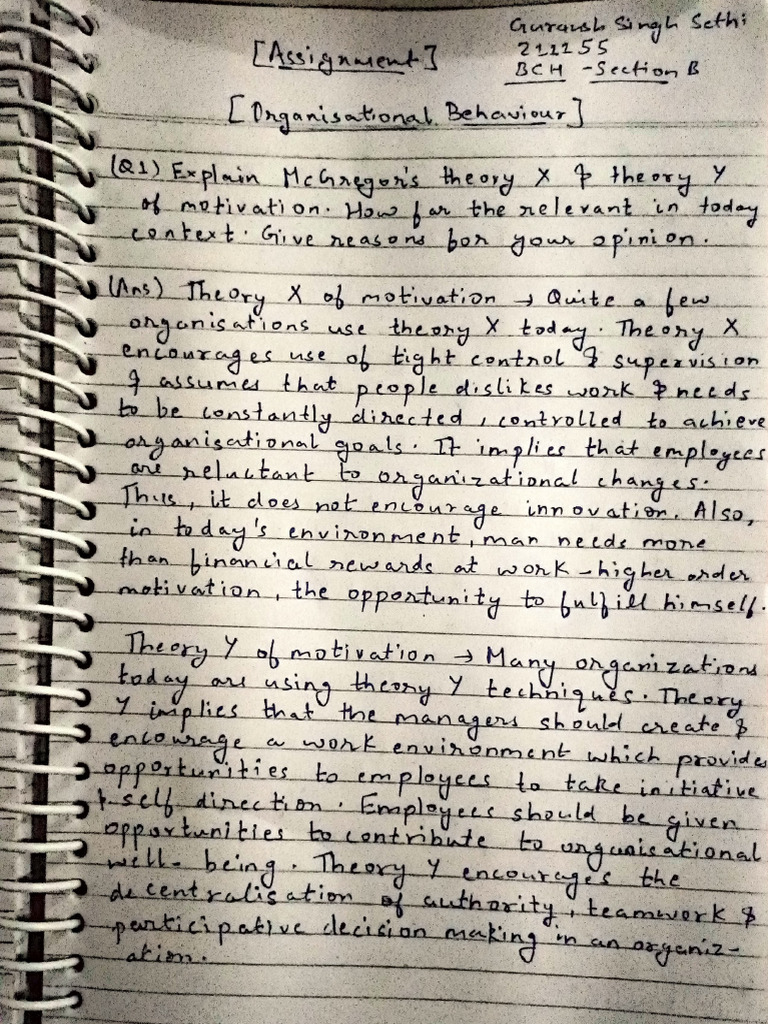 Guransh Singh Sethi
[Assignment]
211155
BCH - Section B
[Organisational Behaviour]
(Q1) Explain McGregor's theory X & theory Y
of motivation. How far the relevant in today
context. Give reasons for your opinion.
(Ans) Theory X of motivation → Quite a few
organisations use theory X today. Theory X
encourages use of tight control & supervision
& assumes that people dislikes work & needs
to be constantly directed, controlled to achieve
organisational goals. It implies that employees
are reluctant to organizational changes.
Thus, it does not encourage innovation. Also,
in today's environment, man needs more
than financial rewards at work - higher order
motivation, the opportunity to fulfill himself.
Theory Y of motivation → Many organizations
today are using theory Y techniques. Theory
Y implies that the managers should create &
encourage a work environment which provides
opportunities to employees to take initiative
& self direction. Employees should be given
opportunities to contribute to organisational
well-being. Theory Y encourages the
decentralisation of authority, teamwork &
participative decision making in an organiz-
ation.